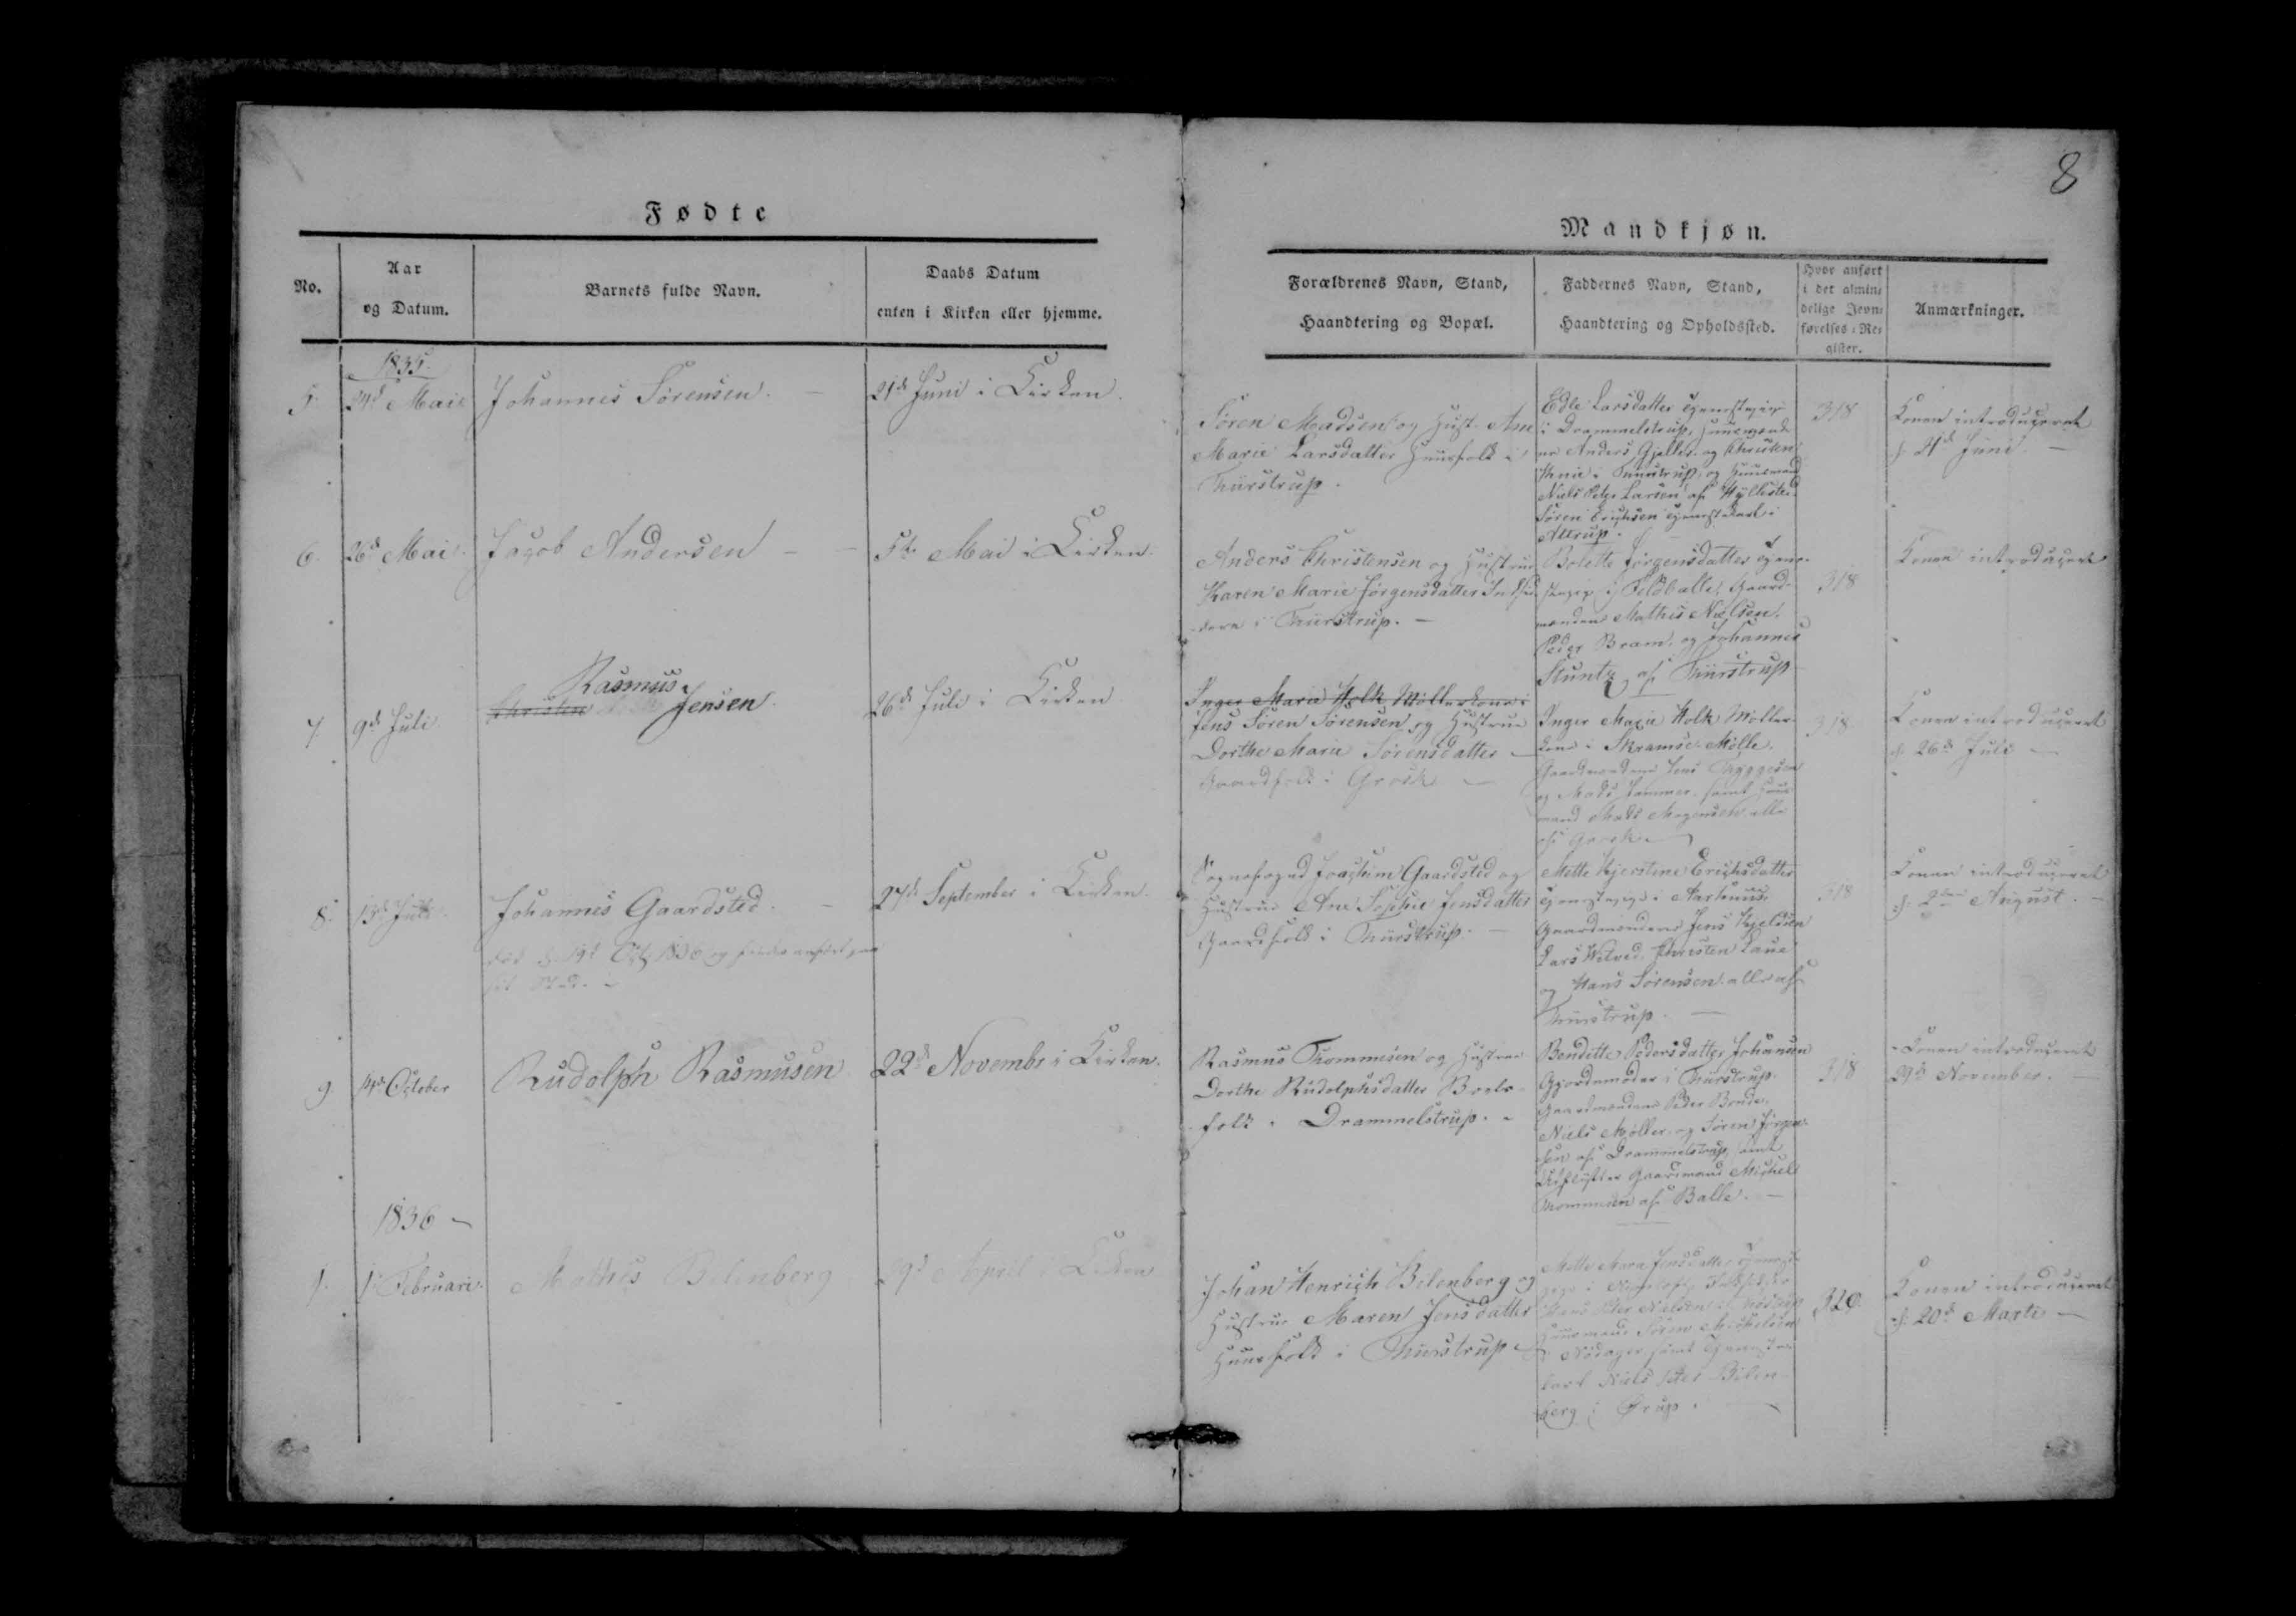 8
Fødte
Mandkjøn.
No.
Aar
og Datum.
Barnets fulde Navn.
Daabs Datum
enten i Kirken eller hjemme.
Forældrenes Navn, Stand,
Haandtering og Bopæl.
Faddernes Navn, Stand,
Haandtering og Opholdssted.
Hvor anført
i det almin-
delige Jevn-
førelses-Re-
gister.
Anmærkninger.
1835.
5.
24d Mai
Johannes Sørensen.
21d Juni i Kirken.
Søren Madsen og Hust. Ane
Marie Larsdatter Huusfolk i
Thirstrup.
Edle Larsdatter
i Drammelstrup, Huusmænde-
ne Anders Gjeller og Christen
i Thirstrup, og Huusmand
Niels Peter Larsen af Hyllested
Søren Erichsen i
Attrup.
318
Konen introduceret
d. 21d Juni.
6.
26d Mai
Jacob Andersen
5te Mai i Kirken.
Anders Christensen og Hustrue
Karen Marie Jørgensdatter Indsid-
dere i Thirstrup.
Bolette Jørgensdatter
i Feldballe, Gaard-
mændene Mathis Nielsen,
Peder Bram, og Johannes
Stuntz af Thirstrup
318
Konen introduceret
7.
9d Juli
Rasmus
Christen Jensen.
26d Juli i Kirken
Inger Marie Holk Møllerkone i
Jens Søren Sørensen og Hustrue
Dorthe Marie Sørensdatter
Gaardfolk i Grosk
Inger Marie Holk Møller-
kone i Skramsø Mølle.
Gaardmændene Jens Thyggesen
og Mads Hammer, samt Huus-
mand Mads Mogensen alle
af Grosk
318
Konen introduceret
d. 26d Juli
8.
15d Juli
Johannes Gaardsted.
død d. 19d Oct. 1836 og findes anført paa
sit Sted.
27d September i Kirken.
Sognefoged Joachim Gaardsted og
Hustrue Ane Sophie Jensdatter
Gaardfolk i Thirstrup.
Mette Kjerstine Erichsdatter
i Aarhuus,
Gaardmændene Jens Kjeldsen
Lars Wetved, Christen Laue
og Hans Sørensen alle af
Thirstrup.
318
Konen introduceret
d. 2den August.
9.
14d October
Rudolph Rasmusen
22d Novembr i Kirken.
Rasmus Thommesen og Hustrue
Dorthe Rudolphsdatter Boels-
folk i Drammelstrup.
Benditte Pedersdatter Johansen
Gjordemoder i Thirstrup.
Gaardmændene Peder Bonde,
Niels Møller, og Søren Jørgen-
sen af Drammelstrup, samt
Gaardmand Michel
Thommesen af Balle.
318
Konen introduceret
29d November.
1836
1.
1. Februari.
Mathis Bilenberg
29d April i Kirken
Johan Henrich Bilenberg og
Hustrue Maren Jensdatter
Huusfolk i Thirstrup
Mette Marie Jensdatter
Huusmand Søren Michelsen
i Nødager samt
karl Niels Peter Bilen-
berg i Ørup.
320
Konen introduceret
d. 20d Marti